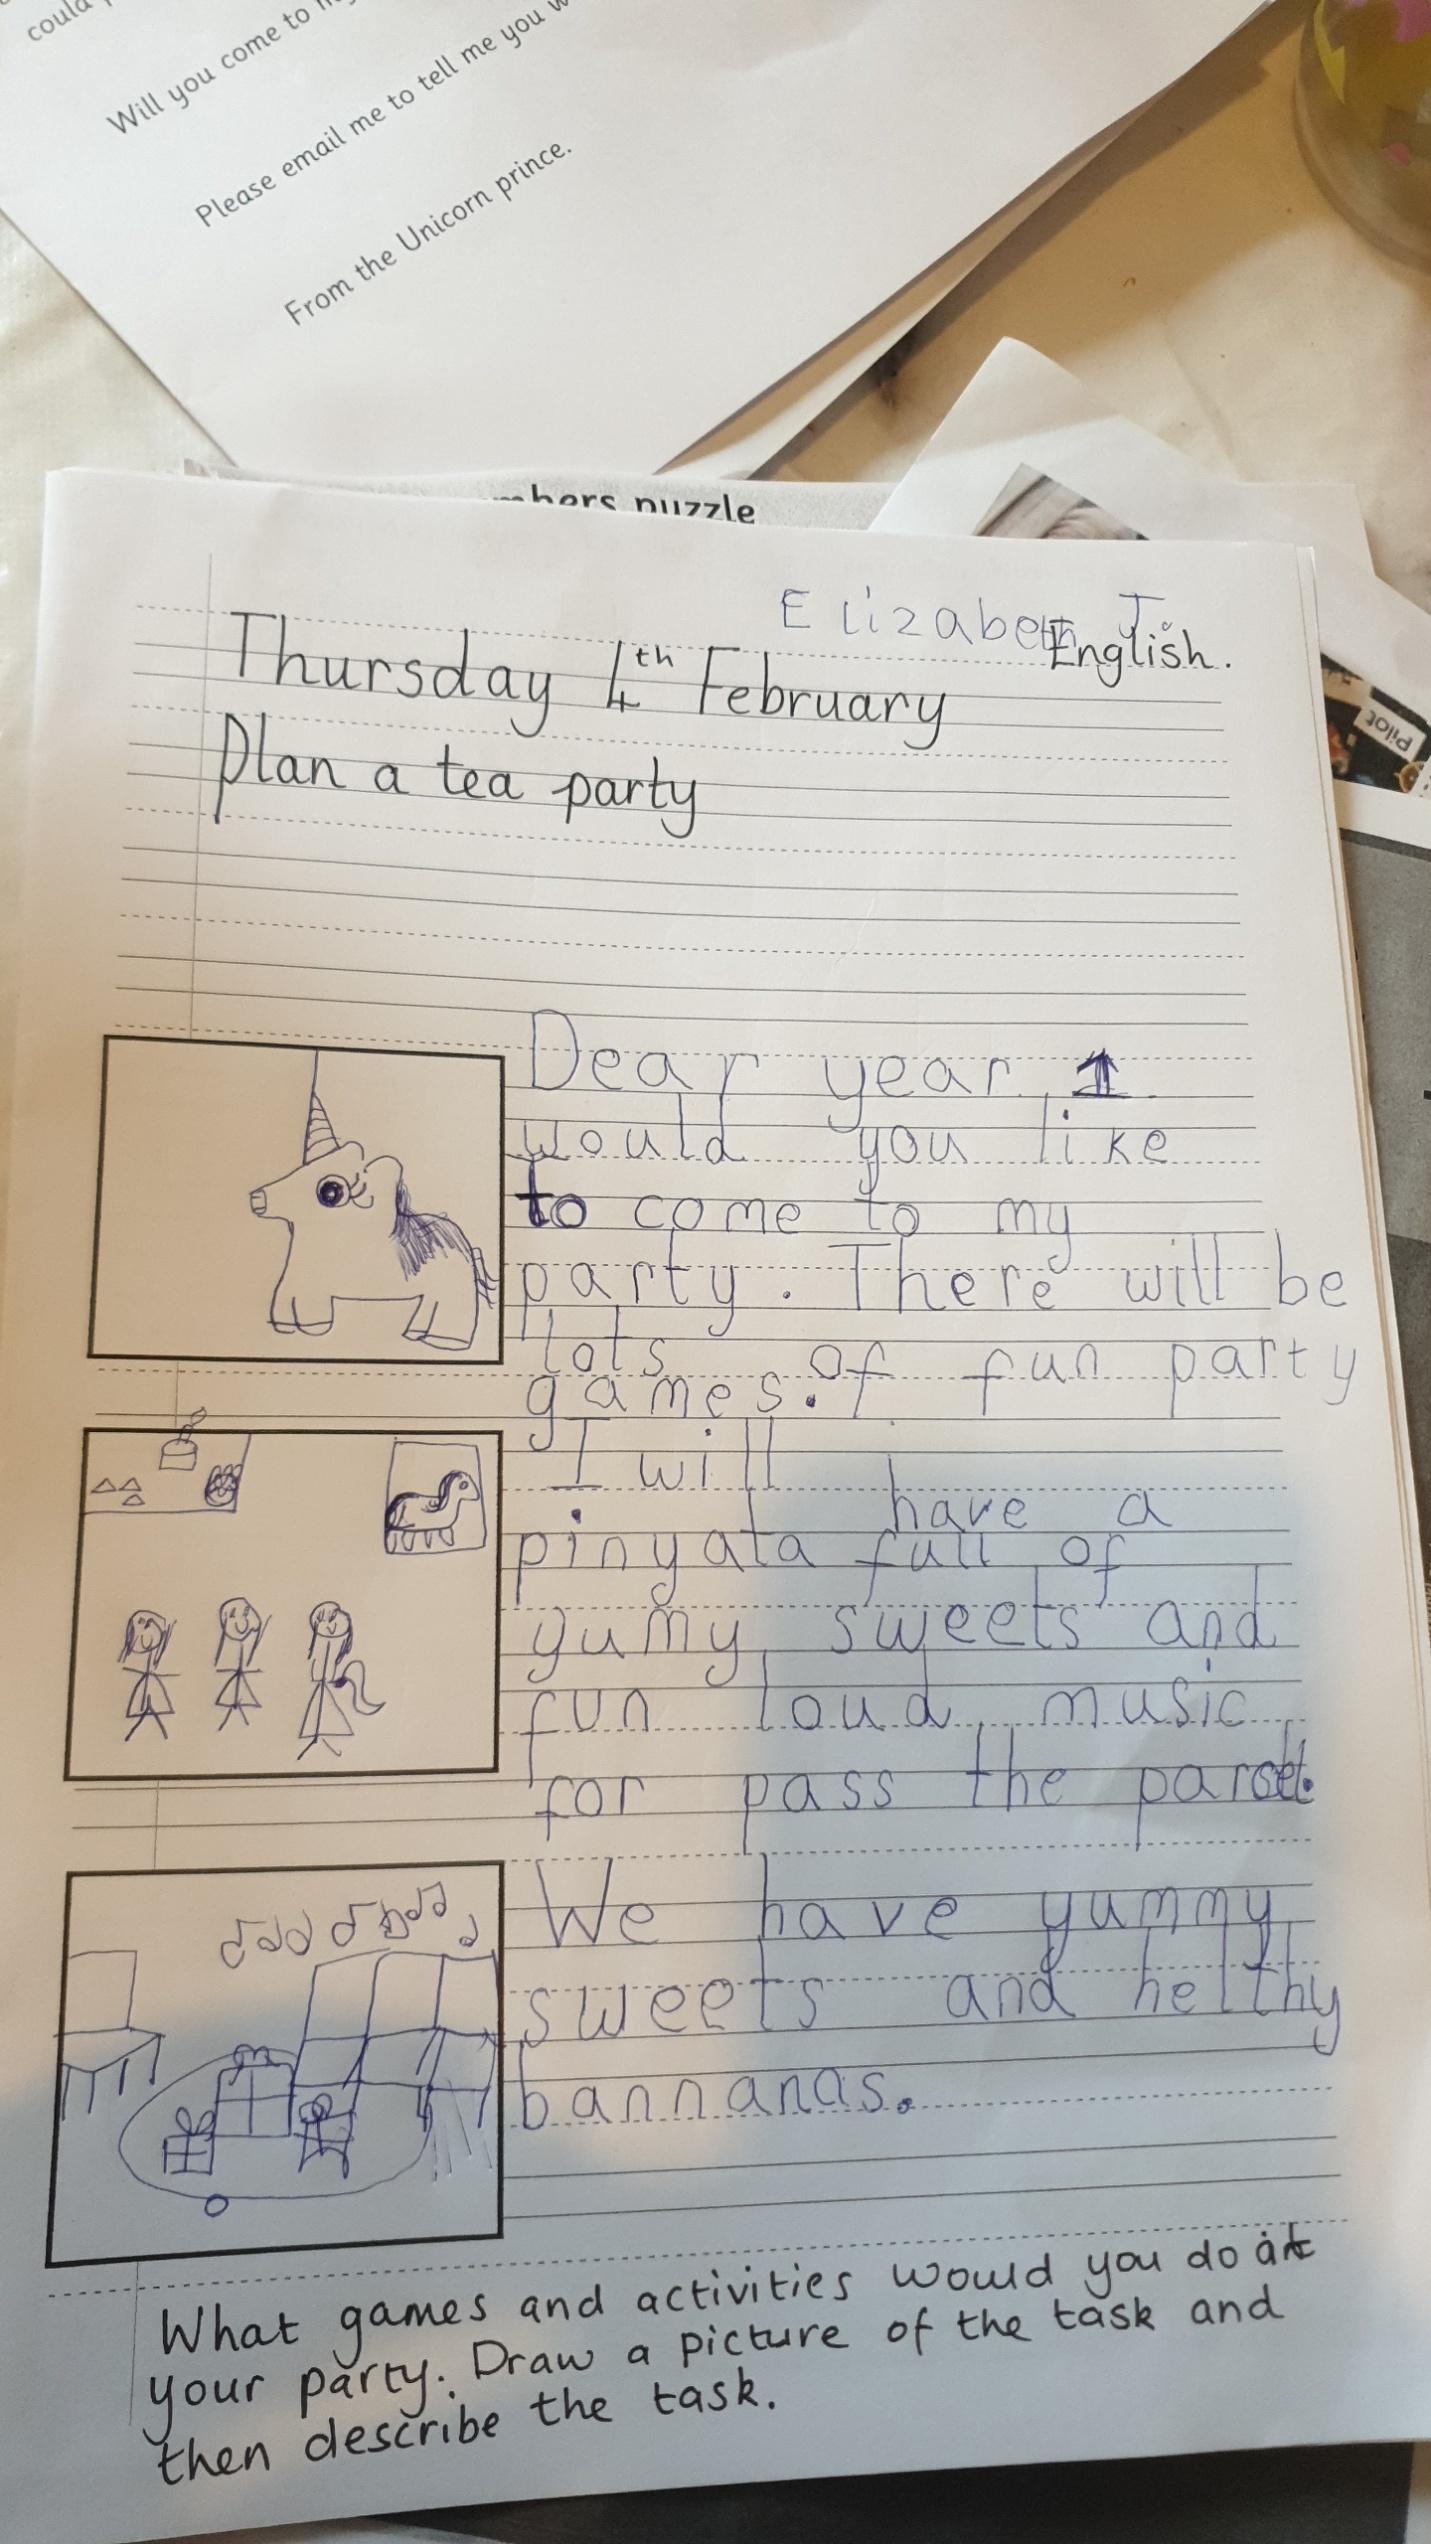 could
Will you come to
Please email me to tell me you
From the Unicorn prince.
puzzle
Elizabeth J.
English.
Thursday 4th February
Plan a tea party
Pilot
Dear year 1
would you like
to come to my
party. There will be
lots of fun party
games.
I will have a
pinyata full of
yumy sweets and
fun loud music
for pass the parcel.
We have yummy
sweets and helthy
bannanas.
What games and activities would you do at
your party. Draw a picture of the task and
then describe the task.